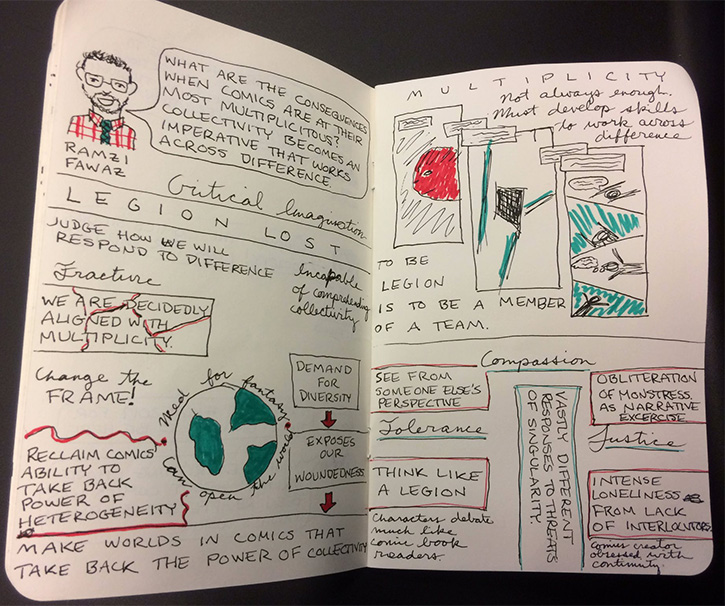 WHAT ARE THE CONSEQUENCES
WHEN COMICS ARE AT THEIR
MOST MULTIPLICITOUS?
COLLECTIVITY BECOMES AN
IMPERATIVE THAT WORKS
ACROSS DIFFERENCE.
RAMZI
FAWAZ
Critical Imagination
LEGION LOST
JUDGE HOW WE WILL
RESPOND TO DIFFERENCE
Incapable
of comprehending
collectivity
Fracture
WE ARE DECIDEDLY
ALIGNED WITH
MULTIPLICITY.
Change the
FRAME!
Need for fantasy
Can open the world
DEMAND
FOR
DIVERSITY
EXPOSES
OUR
WOUNDEDNESS
RECLAIM COMICS'
ABILITY TO
TAKE BACK
POWER OF
HETEROGENEITY
MAKE WORLDS IN COMICS THAT
TAKE BACK THE POWER OF COLLECTIVITY
MULTIPLICITY
Not always enough.
Must develop skills
to work across
difference
TO BE
LEGION
IS TO BE A MEMBER
OF A TEAM.
Compassion
SEE FROM
SOMEONE ELSE'S
PERSPECTIVE
Tolerance
THINK LIKE
A LEGION
Characters debate
much like
comic book
readers.
VASTLY DIFFERENT
RESPONSES TO THREATS
OF SINGULARITY.
OBLITERATION
OF MONSTRESS
AS NARRATIVE
EXCERCISE.
Justice
INTENSE
LONELINESS
FROM LACK
OF INTERLOCUTORS.
Comics creator
obsessed with
continuity.